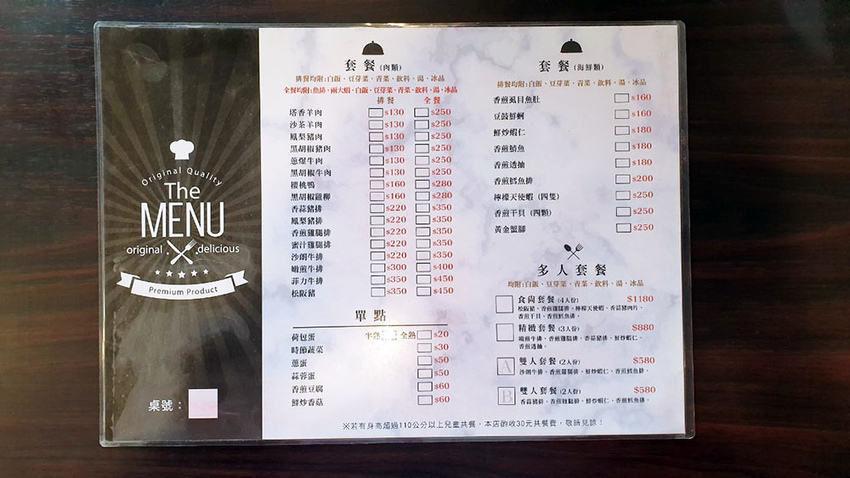 Original Quality
The
MENU
original delicious
Premium Product
桌號：
套餐(肉類)
排餐均附:白飯、豆芽菜、青菜、飲料、湯、冰品
全餐均附:魚排、兩大蝦、白飯、豆芽菜、青菜、飲料、湯、冰品
排餐 全餐
塔香羊肉 $130 $250
沙茶羊肉 $130 $250
鳳梨豬肉 $130 $250
黑胡椒豬肉 $130 $250
蔥爆牛肉 $130 $250
黑胡椒牛肉 $130 $250
櫻桃鴨 $160 $280
黑胡椒雞柳 $160 $280
香蒜豬排 $220 $350
鳳梨豬排 $220 $350
香煎雞腿排 $220 $350
蜜汁雞腿排 $220 $350
沙朗牛排 $220 $350
嫩煎牛排 $300 $400
菲力牛排 $350 $450
松阪豬 $350 $450
單點
荷包蛋 半熟 全熟 $20
時節蔬菜 $30
蔥蛋 $50
蒜蓉蛋 $50
香煎豆腐 $60
鮮炒香菇 $60
套餐(海鮮類)
排餐均附:白飯、豆芽菜、青菜、飲料、湯、冰品
香煎虱目魚肚 $160
豆豉鮮蚵 $160
鮮炒蝦仁 $180
香煎鯖魚 $180
香煎透抽 $180
香煎鱈魚排 $200
檸檬天使蝦(四隻) $250
香煎干貝(四顆) $250
黃金蟹腳 $250
多人套餐
均附:白飯、豆芽菜、青菜、飲料、湯、冰品
食尚套餐(4人份) $1180
松阪豬、香煎雞腿排、檸檬天使蝦、香蒜豬肉片、
香煎干貝、香煎鱈魚排。
精緻套餐(3人份) $880
嫩煎牛排、香煎雞腿排、香蒜豬排、鮮炒蝦仁、
香煎透抽。
A 雙人套餐(2人份) $580
沙朗牛排、香煎雞腿排、鮮炒蝦仁、香煎鱈魚排。
B 雙人套餐(2人份) $580
香蒜豬排、香煎雞腿排、鮮炒蝦仁、香煎鱈魚排。
※若有身高超過110公分以上兒童共餐，本店酌收30元共餐費，敬請見諒！